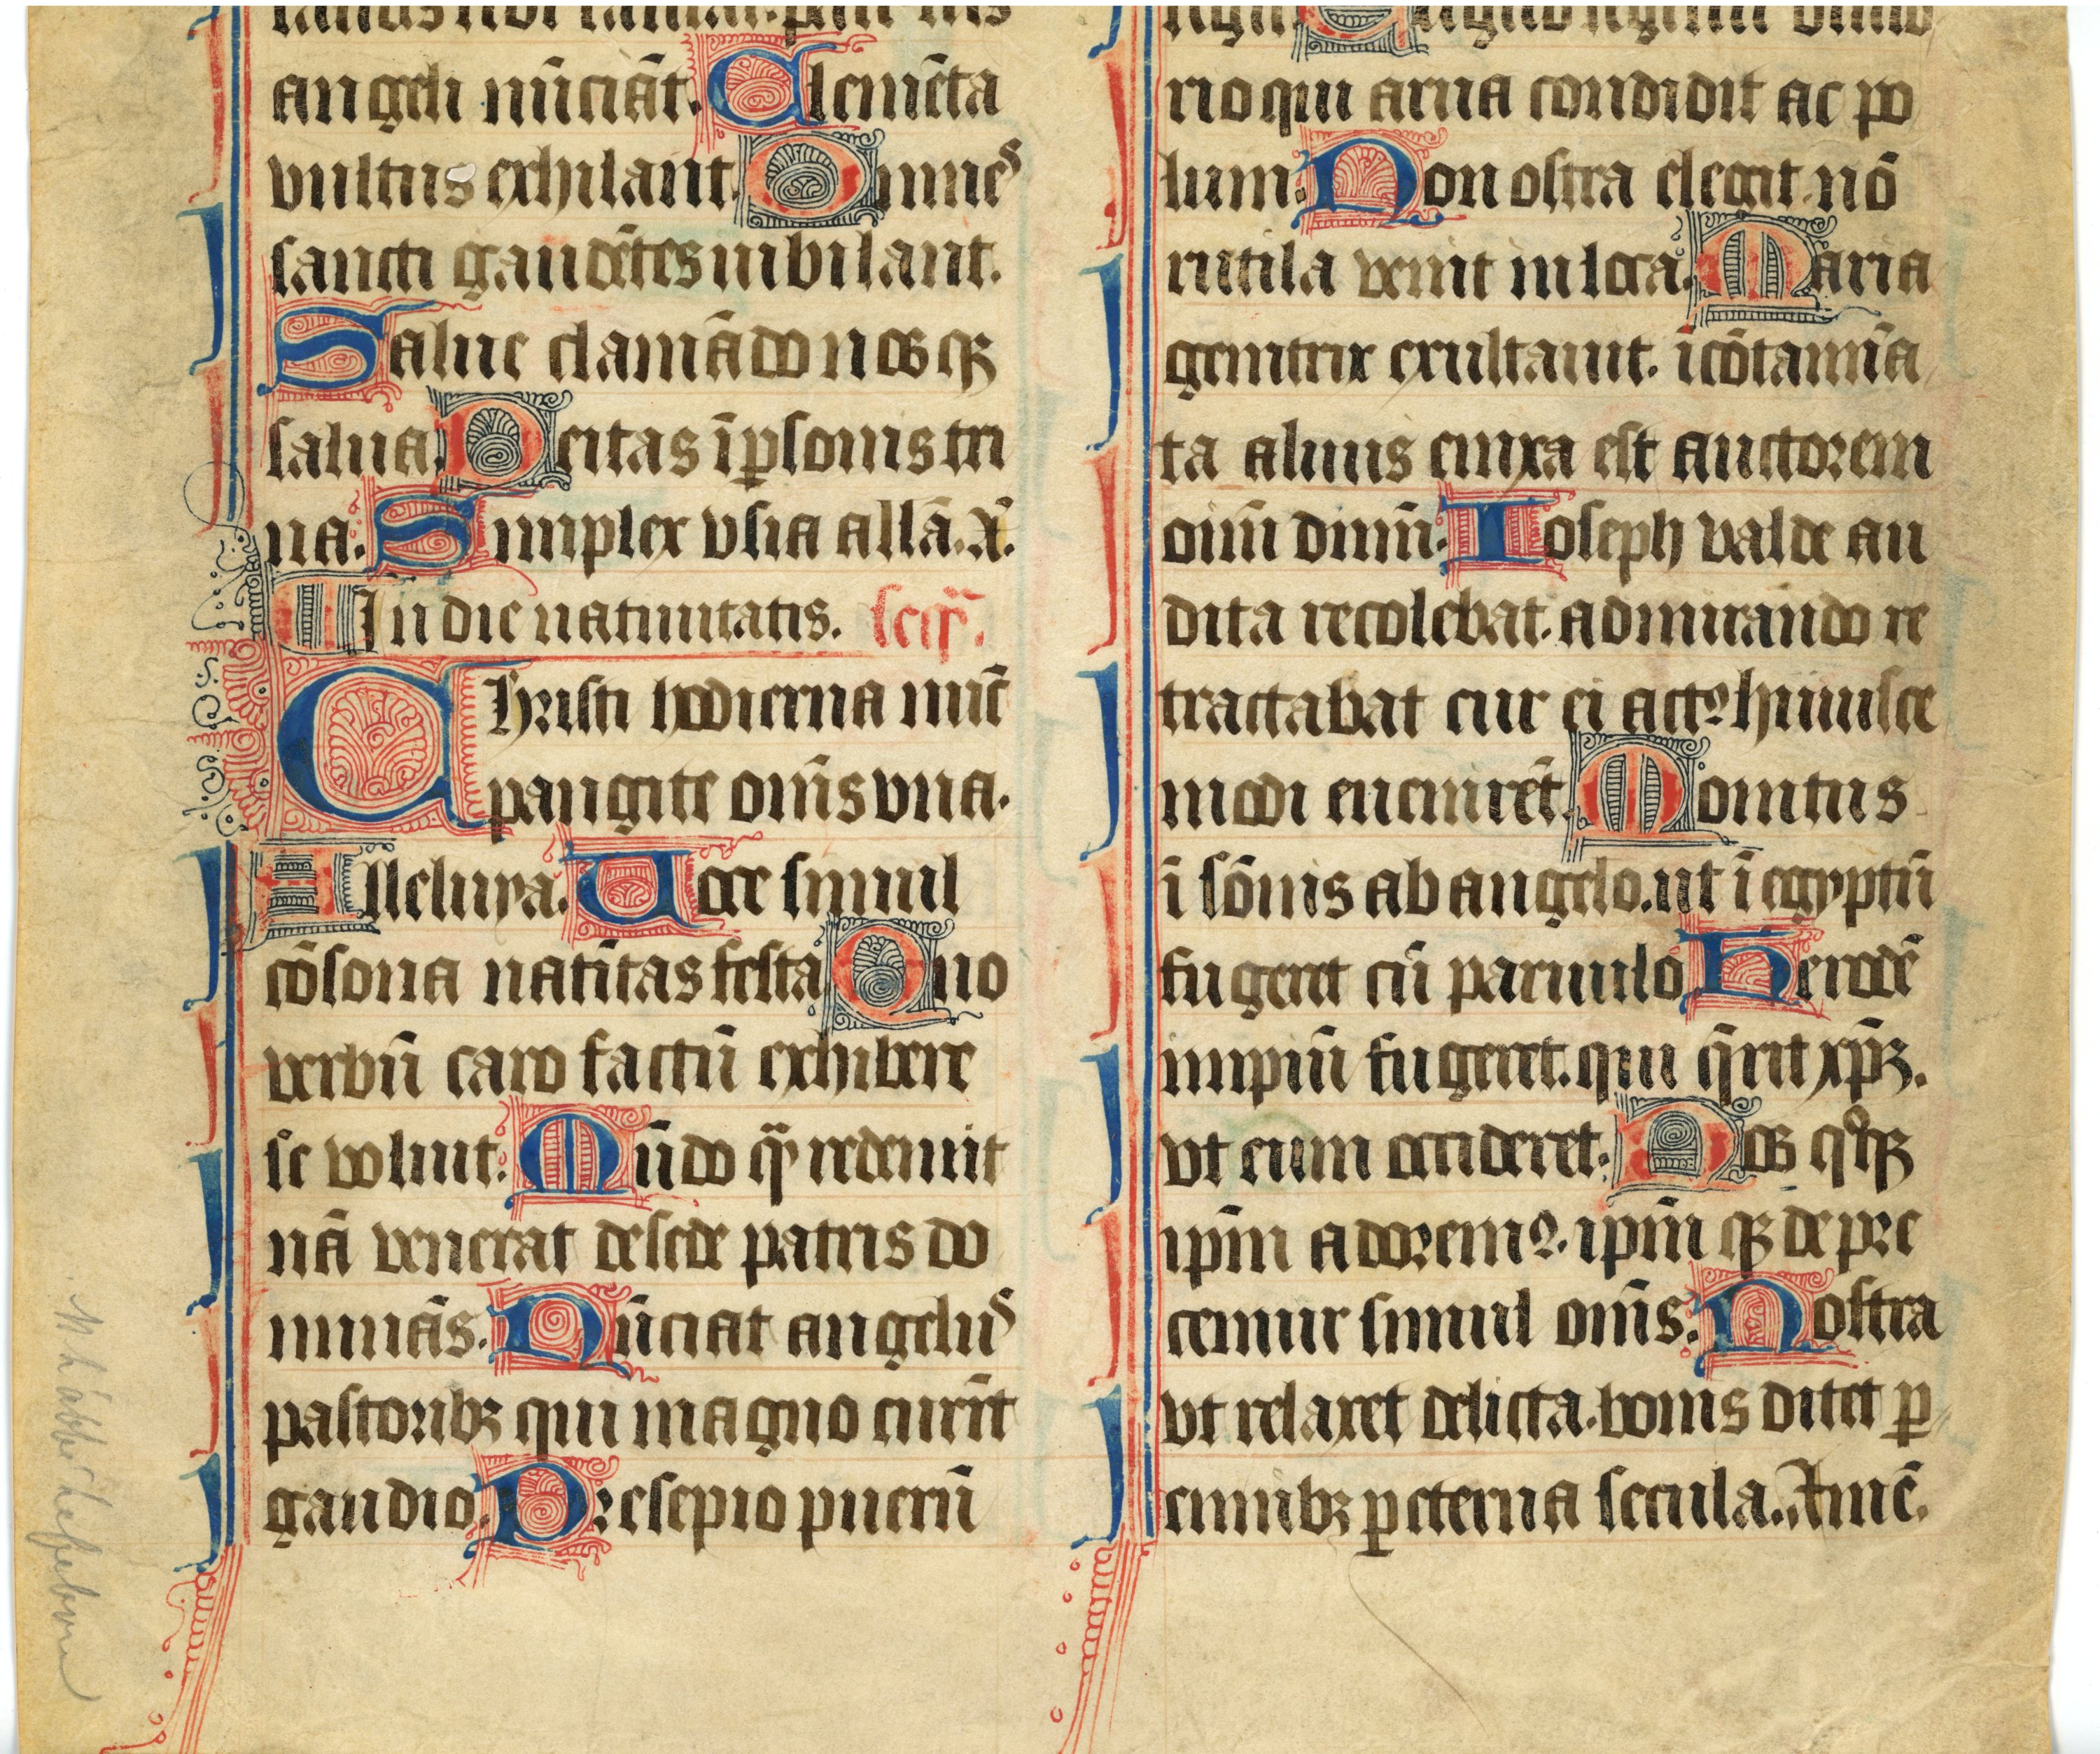 angeli nūciāt. Elemēta
vultus exhilant. Omnes
sancti gaudētes iubilant.
Salue clamādo nosqꝫ
salua. Deitas ī ꝑsonis tri
na. Simplex vsia allā. ā.
In die natiuitatis. Seqr̄.
Christi hodierna nūc
pangite om̄s vna.
Alleluya. Uoce simul
cōsona natītas festa Quo
verbū caro factū exhibere
se voluit. Mūdo qꝫ redemit
nā venerat de sede patris do
minās. Nūciat angelus
pastoribꝫ qui magno currīt
gaudio. Presepio puerū
rio qui arua condidit ac po
lum. Non ostra elegit nō
rutila venit in loca. Maria
genitrix exultauit. ī cōtamīa
ta aluus enixa est auctorem
oīm dūm. Ioseph valde au
dita recolebat. admirando re
tractabat cur ei act9 huiusce
modi eueniret. Monitus
ī sōnis ab angelo. ut ī egyptū
fugeret cū paruulo Herodē
impiū fugeret. qui q̄rit xp̄ꝫ.
vt eum occideret. Nos qoqꝫ
ip̄m adorem9. ip̄mqꝫ depre
cemur simul om̄s. Nostra
vt relaxet delicta. bonis ditet ꝑ
ennibꝫ ꝑ eterna secula. Amē.